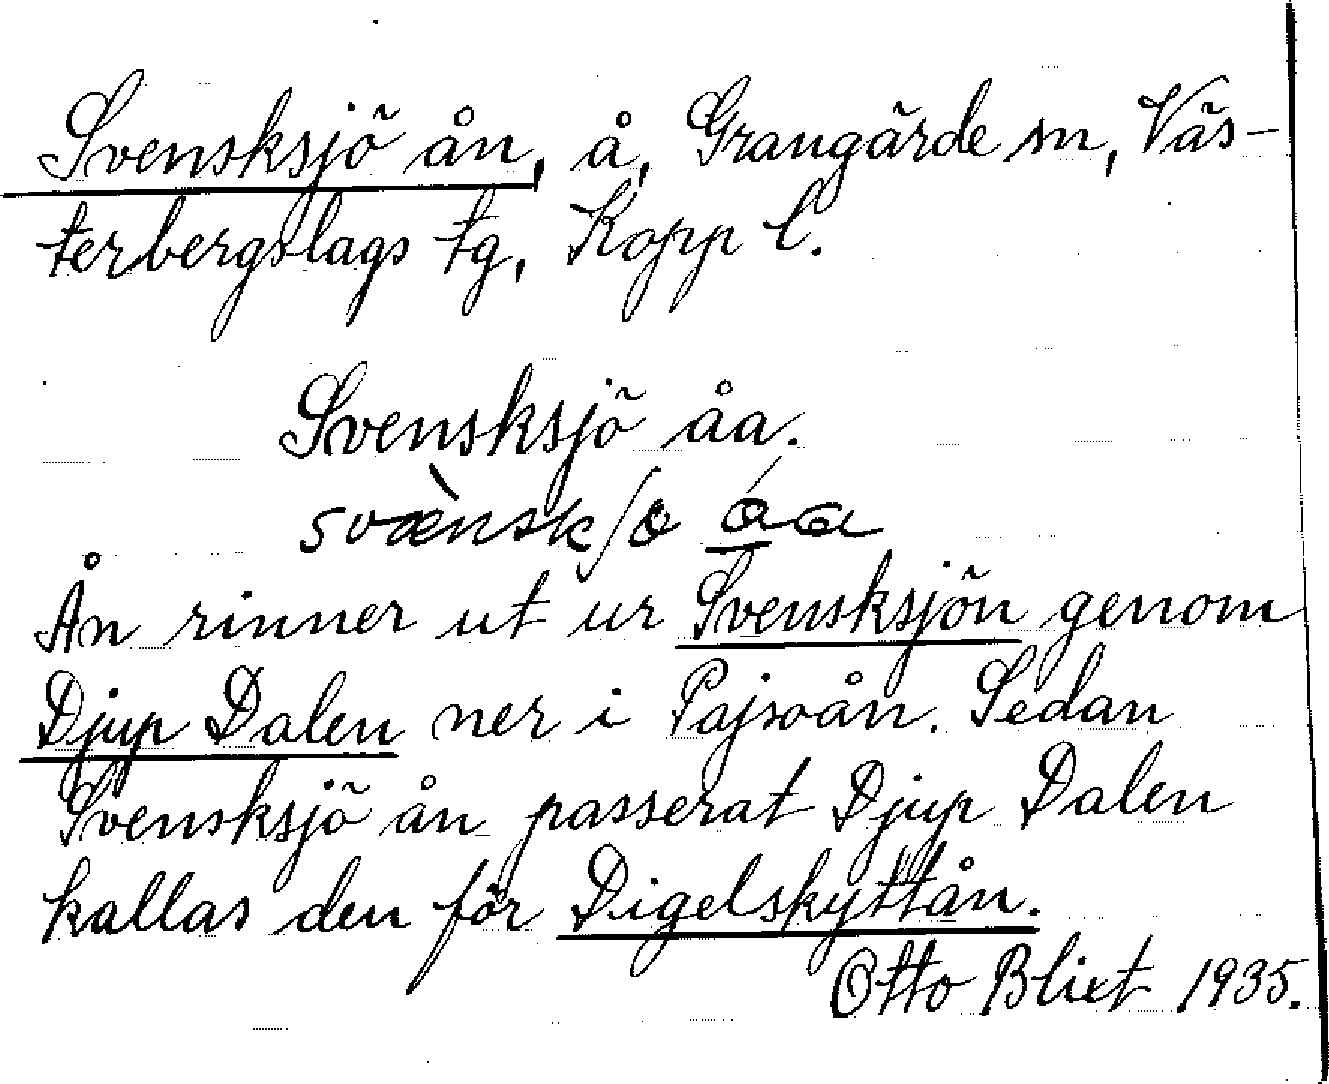 Svensksjö ån, å, Grangärde sn, Väs-
terbergslags tg, Kopp l.
Svensksjö åa.
svænskʃo åa
Ån rinner ut ur Svensksjön genom
Djup Dalen ner i Pajsoån. Sedan
Svensksjö ån passerat Djup Dalen
kallas den för Digelskyttån.
Otto Blixt 1935.